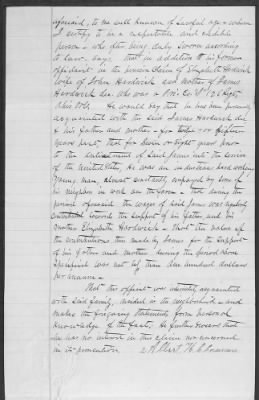 aforesaid, to me well known of lawful age whom
I certify to be a respectable and credible
person, who after being duly sworn according
to law, says that in addition to his former
affidavit in the pension claim of Elizabeth Hardwick
wife of John Hardwick and mother of James
Hardwick dec. who was a Pri. Co. 126 Regt
Ohio Vols. He would say that he has been personally
acquainted with the said James Hardwick dec
& his father and mother for twelve or fifteen
years past, that for seven or eight years prior
to the enlistment of said James into the service
of the United States He was an industrious hard working
young man, almost constantly employed by some of
his neighbors in work on the farm that during the
period aforesaid the wages of said James was regularly
towards the support of his father and his
mother Elizabeth Hardwick. That the value of
the contributions thus made by James for the support
of his father and mother during the period above
specified was not less than one hundred dollars
per annum.
That the affiant was intimately acquainted
with said family, resided in the neighborhood and
makes the foregoing statements from personal
knowledge of the fact. He further swears that
he has no interest in this claim nor concerned
in its prosecution. Albert H.